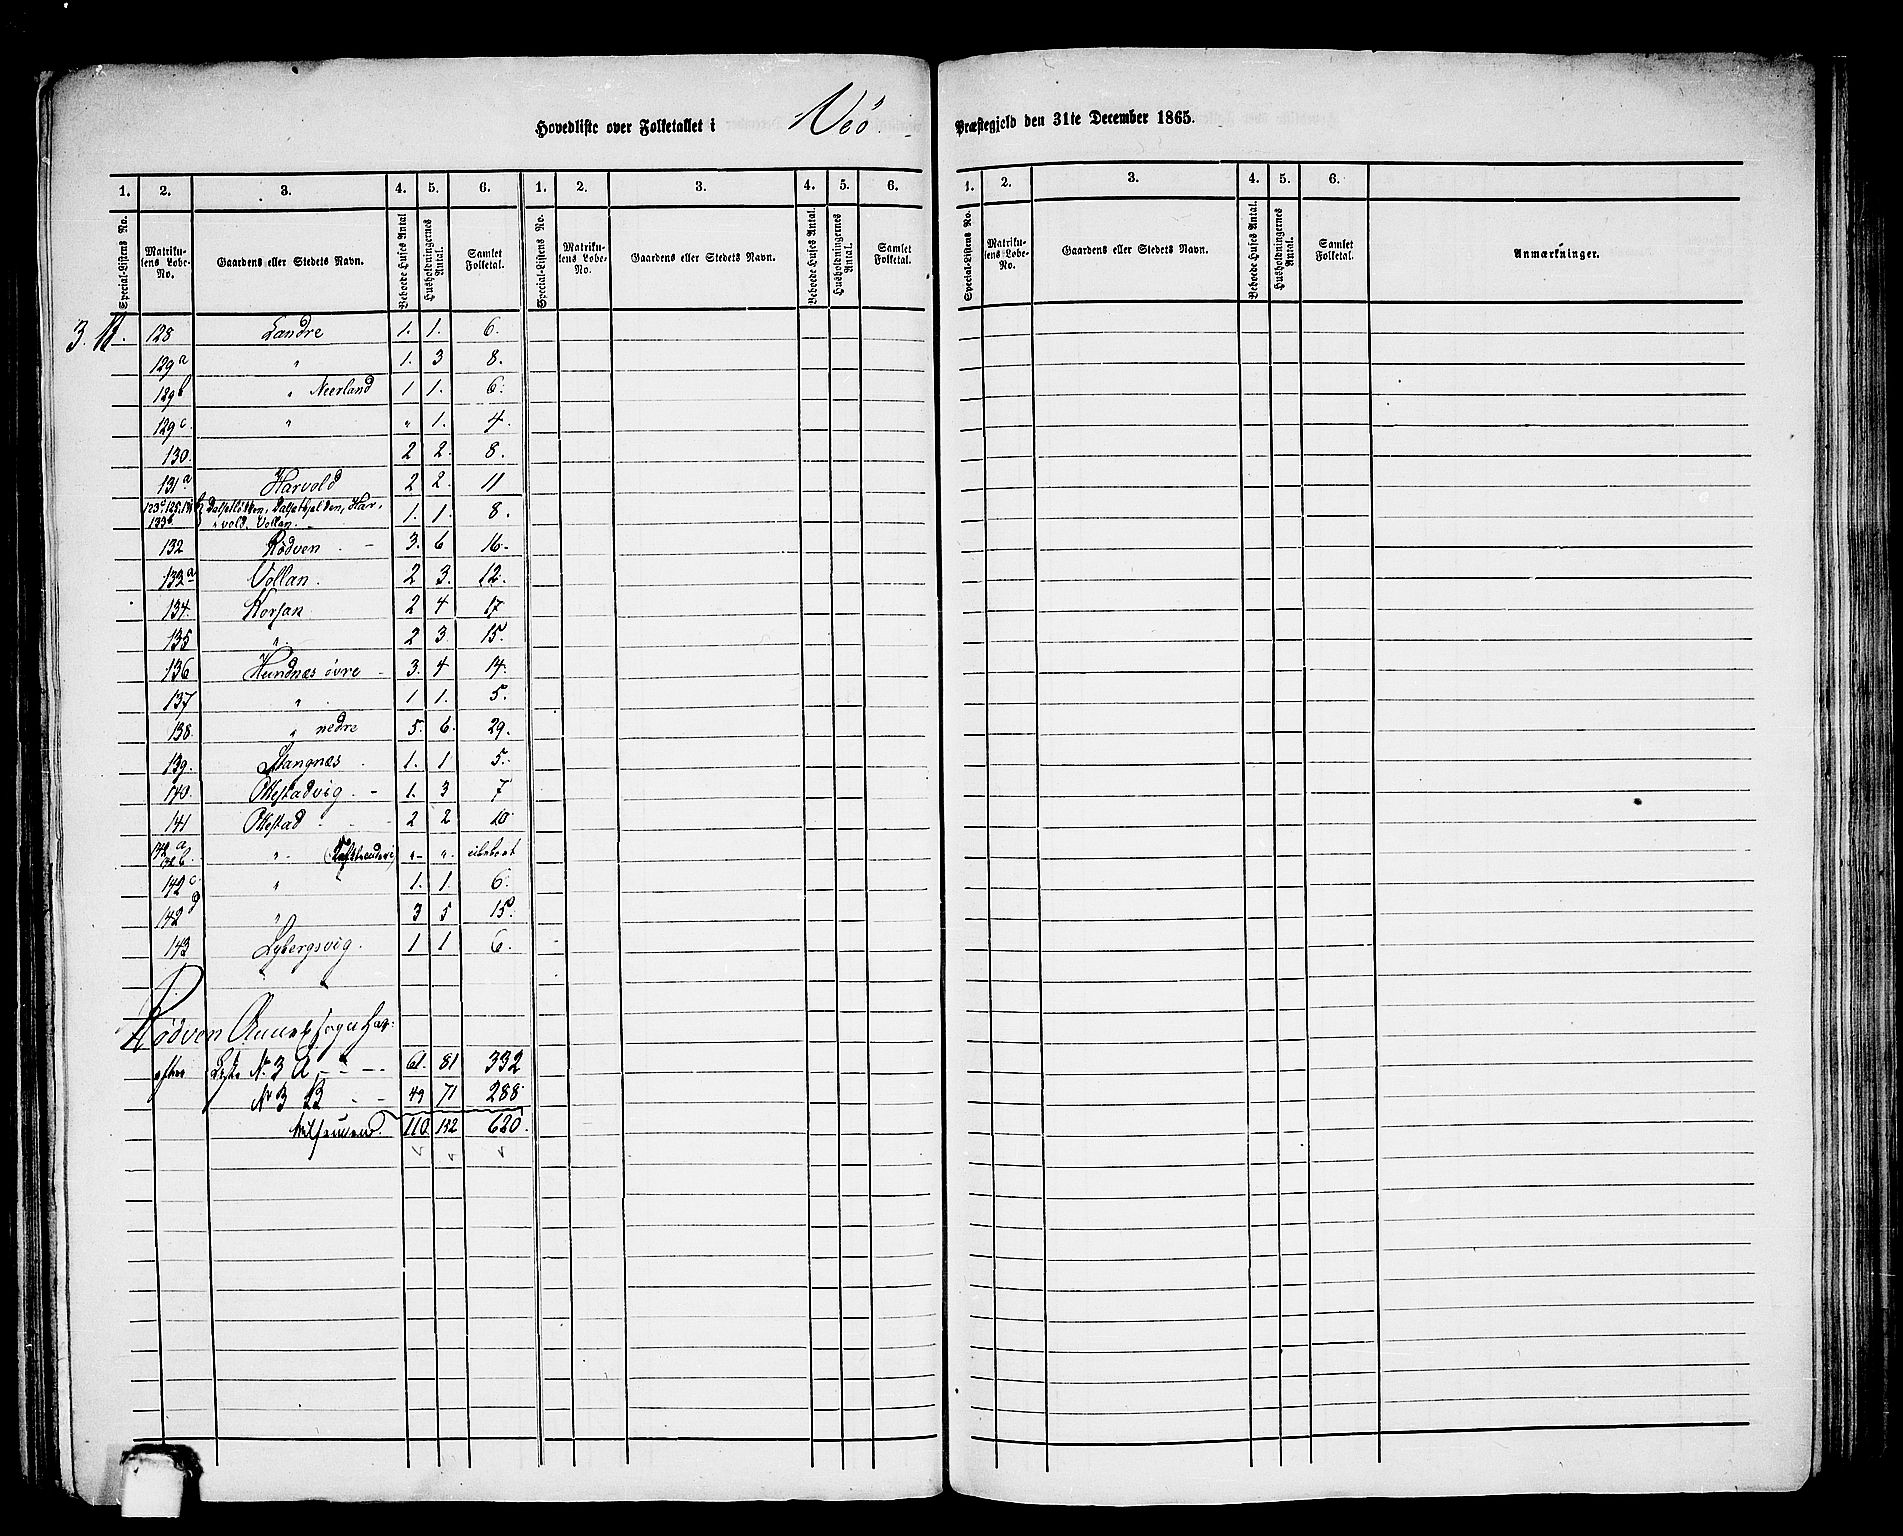 Hovedliste over Folketallet i Veö Præstegjeld den 31te December 1865.
1. 2. 3. 4. 5. 6. 1. 2. 3. 4. 5. 6. 1. 2. 3. 4. 5. 6.
Special-Listens No. Matrikulens Løbe-No. Gaardens eller Stedets Navn. Beboede Huses Antal Husholdningernes Antal. Samlet Folketal. Special-Listens No. Matrikulens Løbe-No. Gaardens eller Stedets Navn. Beboede Huses Antal. Husholdningernes Antal. Samlet Folketal. Special-Listens No. Matrikulens Løbe-No. Gaardens eller Stedets Navn. Beboede Huses Antal. Husholdningernes Antal. Samlet Folketal. Anmærkninger.
3. B. 128 Landre 1. 1. 6.
129 a " 1. 3 8.
129 b " Neerland 1 1. 6.
129 c. " " 1. 4.
130. 2 2. 8.
131 a Harvold 2 2. 11
1. 1. 8.
vold, Vollan.
132 Rödven 3. 6 16.
133 a Vollan. 2 3. 12.
134. Korsan 2 4 17
135 " 2 3. 15.
136 Hundnæs övre 3. 4 14.
137 " 1 1. 5.
138. " nedre 5. 6. 29.
139. Stangnæs 1. 1 5.
140. Ottestadvig 1. 3 7
141 Ottestad 2 2 10
142 a " " "
142 b.
142 c. " 1. 1. 6.
142 d " 3 5 15.
143 Lybergsvig. 1 1 6.
Rödven Annexsogn har:
efter Liste No. 3 A 61. 81 332
No 3 B 49 71 288
Tilsammen 110. 152 620.